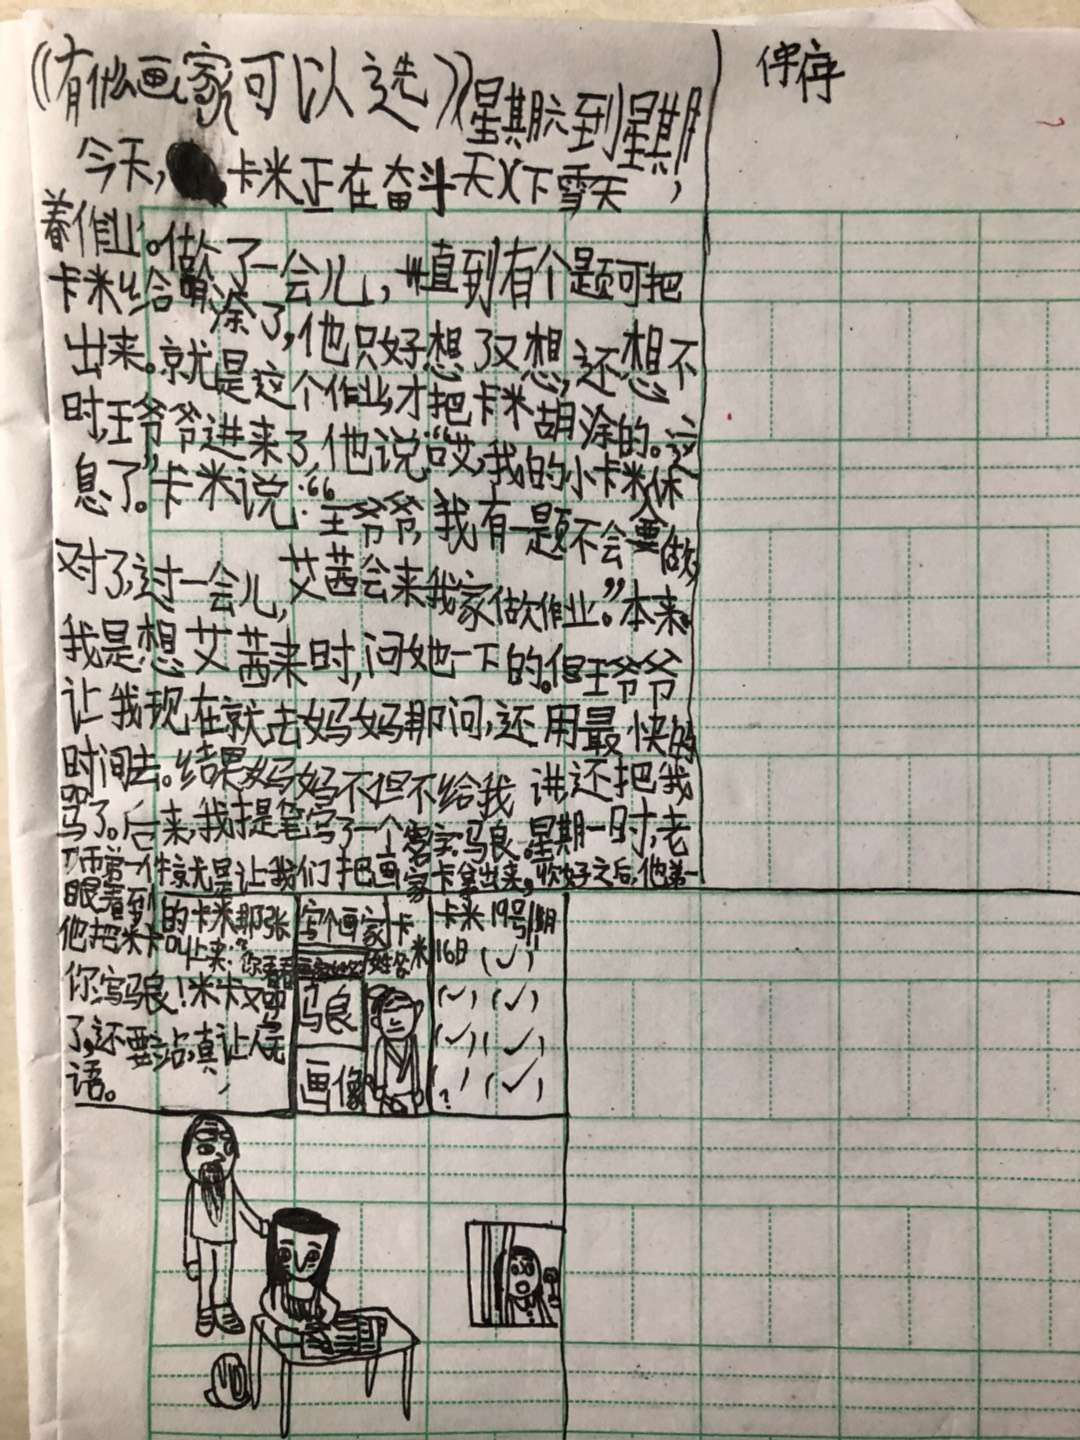 《有什么画家可以选》星期六到星期
今天，卡米正在奋斗天(下雪天，
着作业。做了一会儿，一直到有个题可把
卡米给胡涂了，他只好想了又想，还想不
出来。就是这个作业，才把卡米胡涂的。这
时，王爷爷进来了，他说“哎，我的小卡米休
息了。”卡米说：“王爷爷，我有一题不会做，
对了，过一会儿，艾茜会来我家做作业。”本来。
我是想艾茜来时，问她一下的。但王爷爷
让我现在就去妈妈那问，还用最快的
时间去。结果妈妈不但不给我讲还把我
骂了。后来，我提笔写了一个马良。星期一时，老
师第一件就是让我们把画家卡拿出来，收好之后，他第一
眼看到的卡米那张
他把米卡叫上来：“你看看
你写马良！米卡又
了，还要站，真让人无
语。
写个画家卡
姓名 米
马良
画像
卡米 19号
16日 (✓)
(✓) (✓)
(✓) (✓)
(✓)